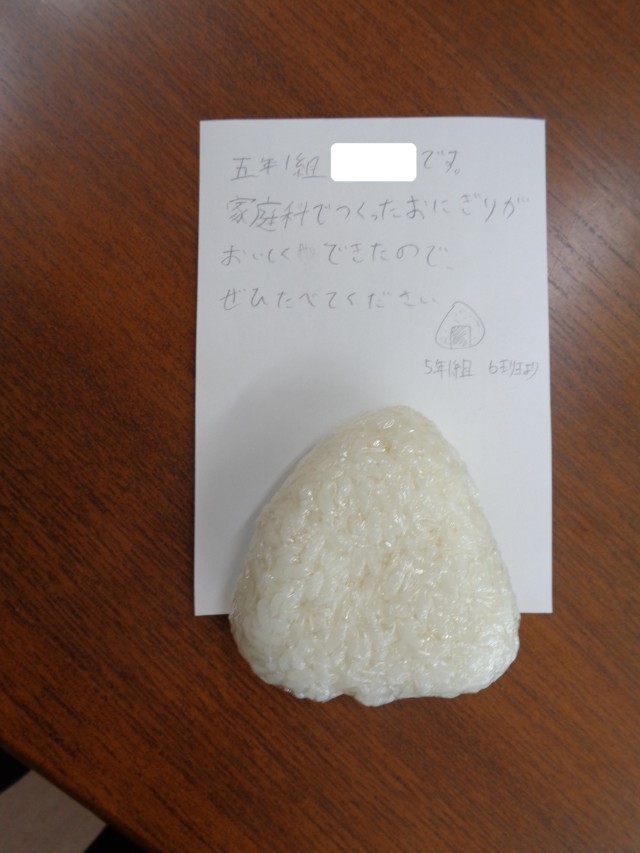 五年1組 です。
家庭科でつくったおにぎりが
おいしくできたので、
ぜひたべてください
5年1組 6班より